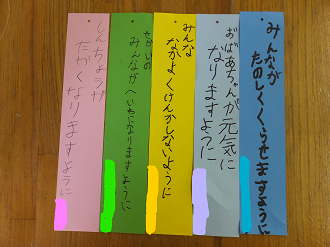 みんなが
たのしくくらせますように
おばあちゃんが元気に
なりますように
みんな
なかよくけんかしないように
せかいの
みんながへいわになりますように
しんちょうが
たかくなりますように